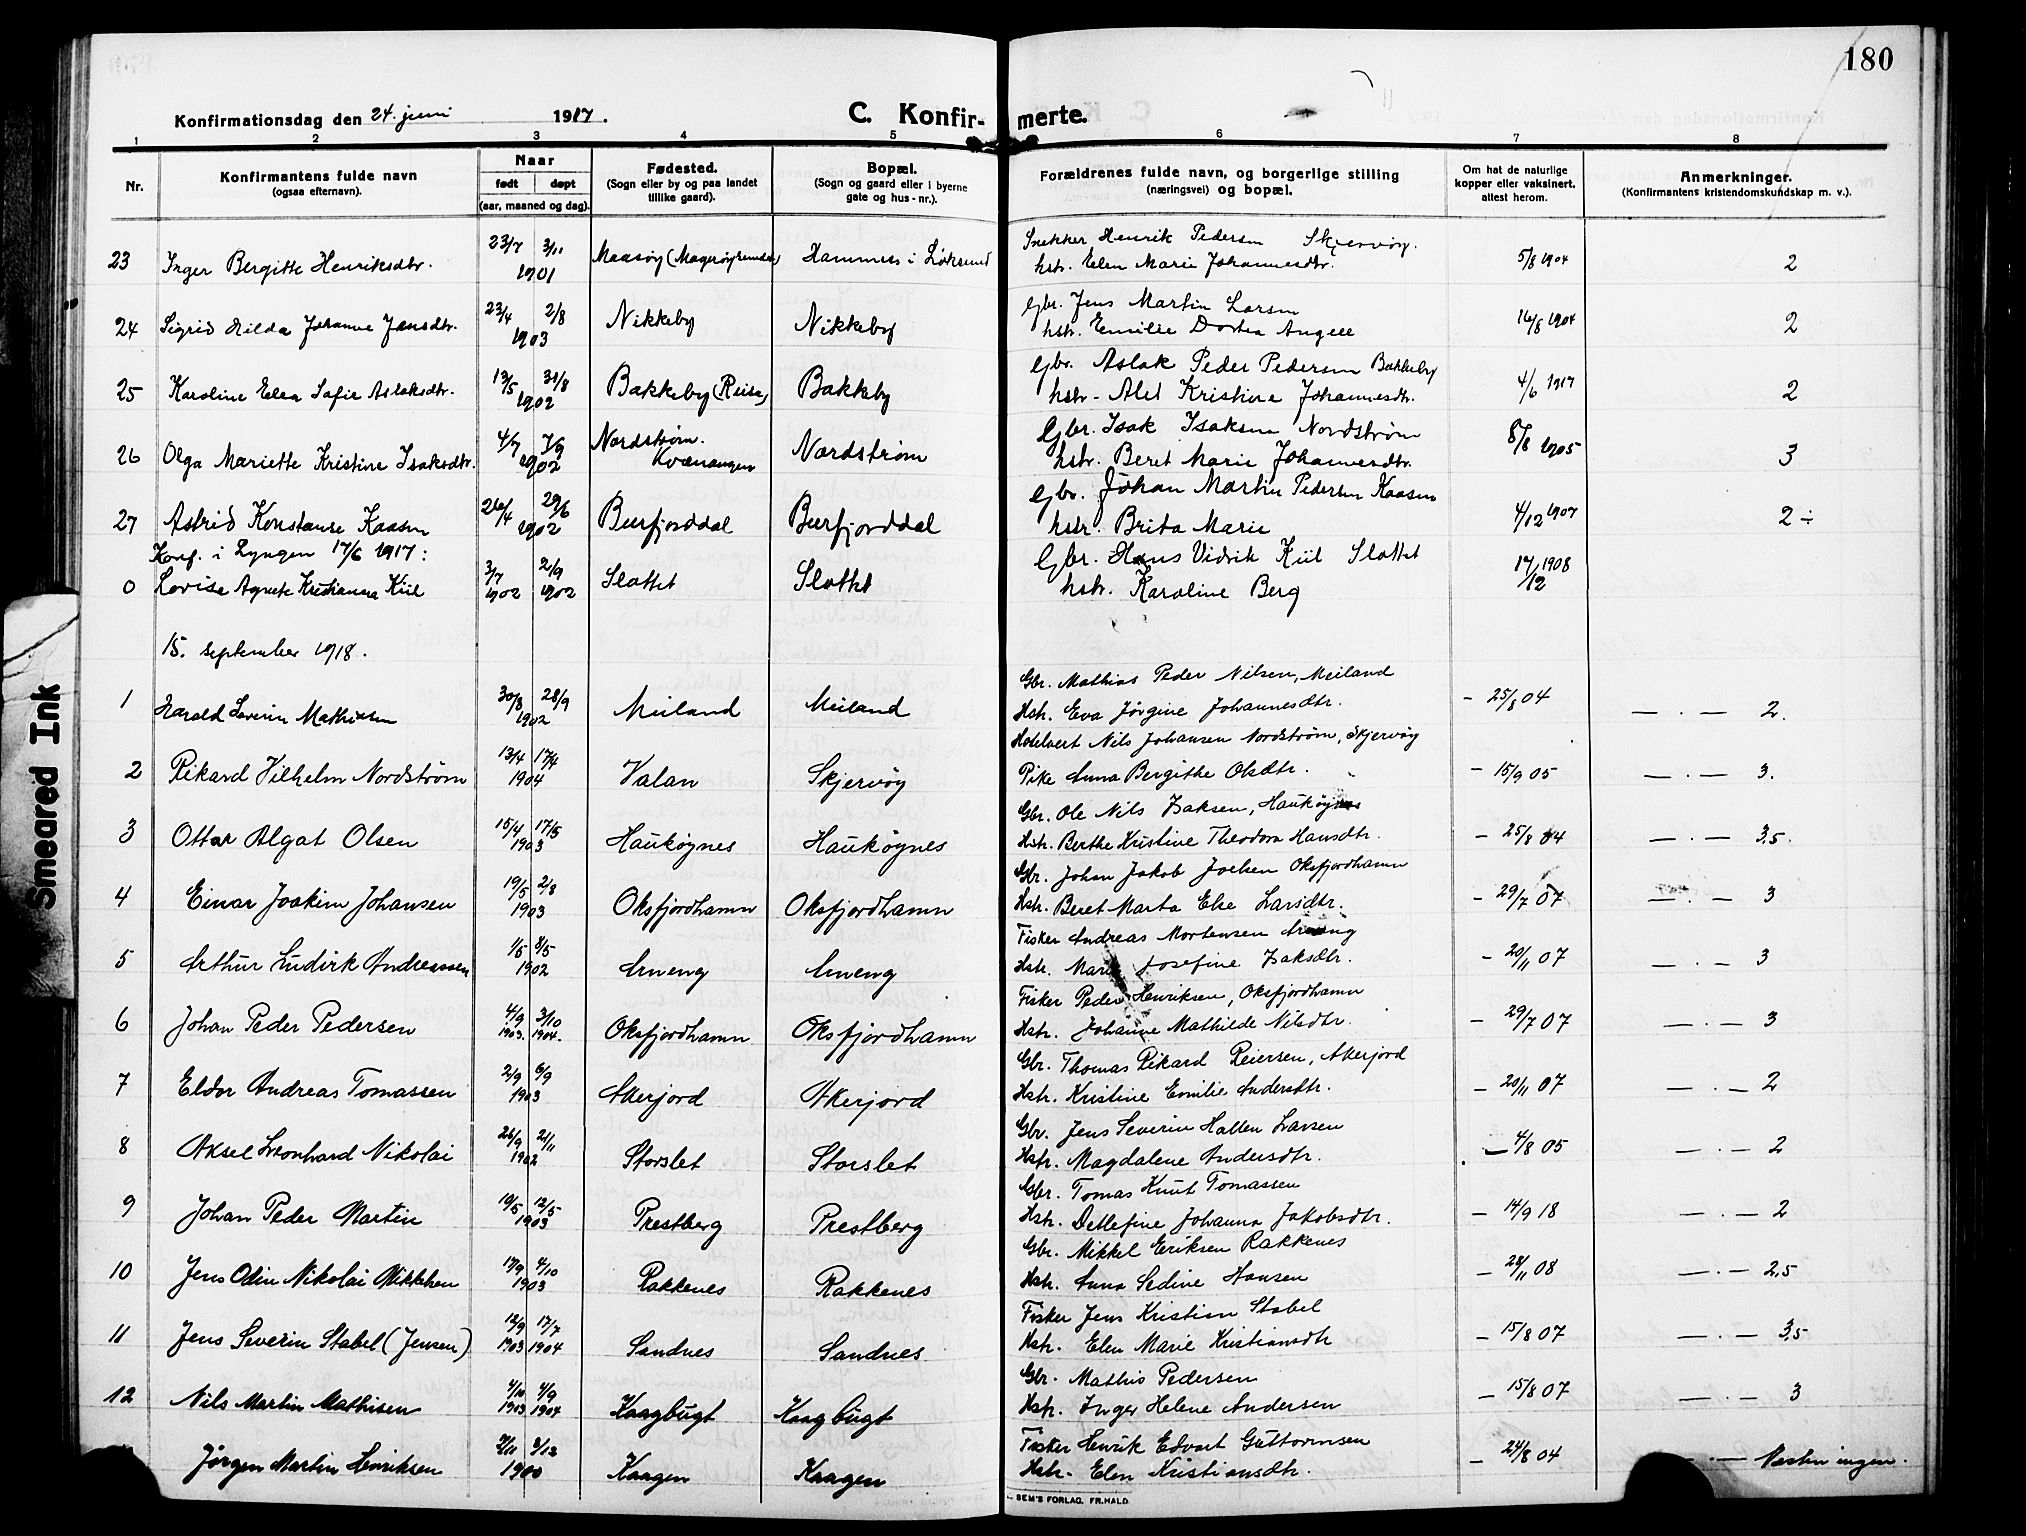 180
Konfirmationsdag den 24. juni 1917.
C. Konfirmerte.
1 2 3 4 5 6 7 8
Nr.
Konfirmantens fulde navn
(ogsaa efternavn).
Naar
født døpt
(aar, maaned og dag).
Fødested.
(Sogn eller by og paa landet
tillike gaard).
Bopæl.
(Sogn og gaard eller i byerne
gate og hus-nr.).
Forældrenes fulde navn, og borgerlige stilling
(næringsvei) og bopæl.
Om hat de naturlige
kopper eller vaksinert.
attest herom.
Anmerkninger.
(Konfirmantens kristendomskundskap m. v.).
Snekker Henrik Pedersen Skjervøy.
23 Inger Bergitte Henriksdtr. 23/7 3/11 1901 Maasøy Hamnes i
hstr. Elen Marie Johannesdtr. 5/8 1904 2
Gbr. Jens Martin Larsen
24 Sigrid Hilda Johanne Jensdtr. 23/4 2/8 1903 Nikkeby Nikkeby
hstr. Emilie Dortea Angell 16/8 1904 2
Gbr. Aslak Peder Pedersen Bakkeby
25 Karoline Elea Sofie Aslaksdtr. 13/5 31/8 1902 Bakkeby (Reisa) Bakkeby
hstr. Alet Kristine Johannesdtr. 4/6 1917 2
Gbr. Isak Isaksen Nordstrøm
26 Olga Mariette Kristine Isaksdtr. 4/7 7/9 1902 Nordstrøm. Kvænangen Nordstrøm
hstr. Beret Marie Johannesdtr. 8/8 1905 3
Gbr. Johan Martin Pedersen Kaasen
27 Astrid Konstanse Kaasen 26/4 29/6 1902 Burfjorddal Burfjorddal
hstr. Brita Marie 4/12 1907 2 ÷
Konf. i Lyngen 17/6 1917:
Gbr. Hans Vidrik Kiil Slottet
0 Lovise Agnete Kristianna Kiil 3/7 1902 21/9 1902 Slottet Slottet
hstr. Karoline Berg 17/12 1908
15. september 1918.
Gbr. Mathias Peder Nilsen, Meiland
1 Harald Severin Mathisen 30/8 28/9 1902 Meiland Meiland
Hstr. Eva Jørgine Johannesdtr. - 25/8 04 — . — 2.
Nils Johansen Nordstrøm, Skjervøy
2 Rikard Vilhelm Nordstrøm 13/4 17/4 1904 Valan Skjervøy
Pike Anna Bergithe Olsdtr. - 15/9 05 — . — 3.
Gbr. Ole Nils Isaksen, Haukøynes
3 Ottar Algat Olsen 15/4 17/5 1903 Haukøynes Haukøynes
Hstr. Berthe Kristine Theodora Hansdtr. - 25/8 04 — . — 3,5.
Gbr. Johan Jakob Joelsen Oksfjordhamn
4 Einar Joakim Johansen 19/5 2/8 1903 Oksfjordhamn Oksfjordhamn
Hstr. Beret Marta Else Larsdtr. - 29/7 07 — . — 3
Fisker Andreas Mortensen Arneng
5 Arthur Ludirk Andreassen 1/5 8/5 1902 Arneng Arneng
Hstr. Marie Josefine Isaksdtr. - 20/11 07 — . — 3
Fisker Peder Henriksen, Oksfjordhamn
6 Johan Peder Pedersen 4/9 1903. 3/10 1904. Oksfjordhamn Oksfjordhamn
Hstr. Johanne Mathilde Nilsdtr. - 29/7 07 — . — 3
Gbr. Thomas Rikard Reiersen, Akerjord
7 Eldor Andreas Tomassen 2/9 6/9 1903 Akerjord Akerjord
Hstr. Kristine Emilie Andersdtr. - 20/11 07 — . — 2
Gbr. Jens Severin Hallen Larsen
8 Aksel Leonhard Nikolai 26/9 21/11 1902 Storslet Storslet
Hstr. Magdalene Andersdtr. - 4/8 05 — . — 2
Gbr. Tomas Knut Tomassen
9 Johan Peder Martin 10/5 12/5 1903 Prestberg Prestberg
Hstr. Detlefine Johanna Jakobsdtr. - 14/9 18 — . — 2
Gbr. Mikkel Eriksen Rakkenes
10 Jens Odin Nikolai Mikkelsen 17/9 4/10 1903 Rakkenes Rakkenes
Hstr. Anna Sedine Hansen - 28/11 08 — . — 2,5
Fisker Jens Kristian Stabel
11 Jens Severin Stabel (Jensen) 12/9 1903 17/7 1904 Sandnes Sandnes
Hstr. Elen Marie Kristiansdtr - 15/8 07 — . — 3,5
Gbr. Mathis Pedersen
12 Nils Martin Mathisen 4/10 1903 4/9 1904 Kaagbugt Kaagbugt
Hstr. Inger Helene Andersen - 15/8 07 — . — 3
Fisker Henrik Edvart Guttormsen
Jørgen Martin Henriksen 7/11 3/12 1900 Kaagen Kaagen
Hstr. Elen Kristiansdtr. - 24/8 04 . — Næsten ingen.
SEM'S FORLAG, FR.HALD.
Smeared Ink